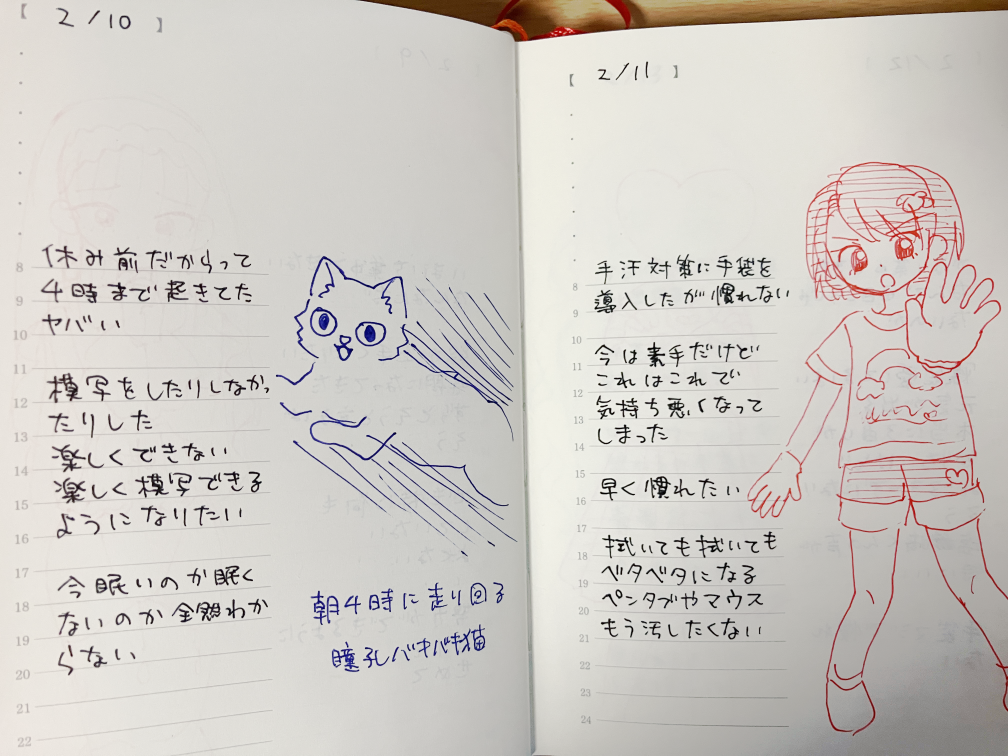 【 2/10 】
休み前だからって
4時まで起きてた
ヤバい
模写をしたりしなかっ
たりした
楽しくできない
楽しく模写できる
ようになりたい
今眠いのか眠く
ないのか全然わか
らない
朝4時に走り回る
瞳孔バキバキ猫
8
9
10
11
12
13
14
15
16
17
18
19
20
21
22
【 2/11 】
手汗対策に手袋を
導入したが慣れない
今は素手だけど
これはこれで
気持ち悪くなって
しまった
早く慣れたい
拭いても拭いても
ベタベタになる
ペンタブやマウス
もう汚したくない
8
9
10
11
12
13
14
15
16
17
18
19
20
21
22
23
24